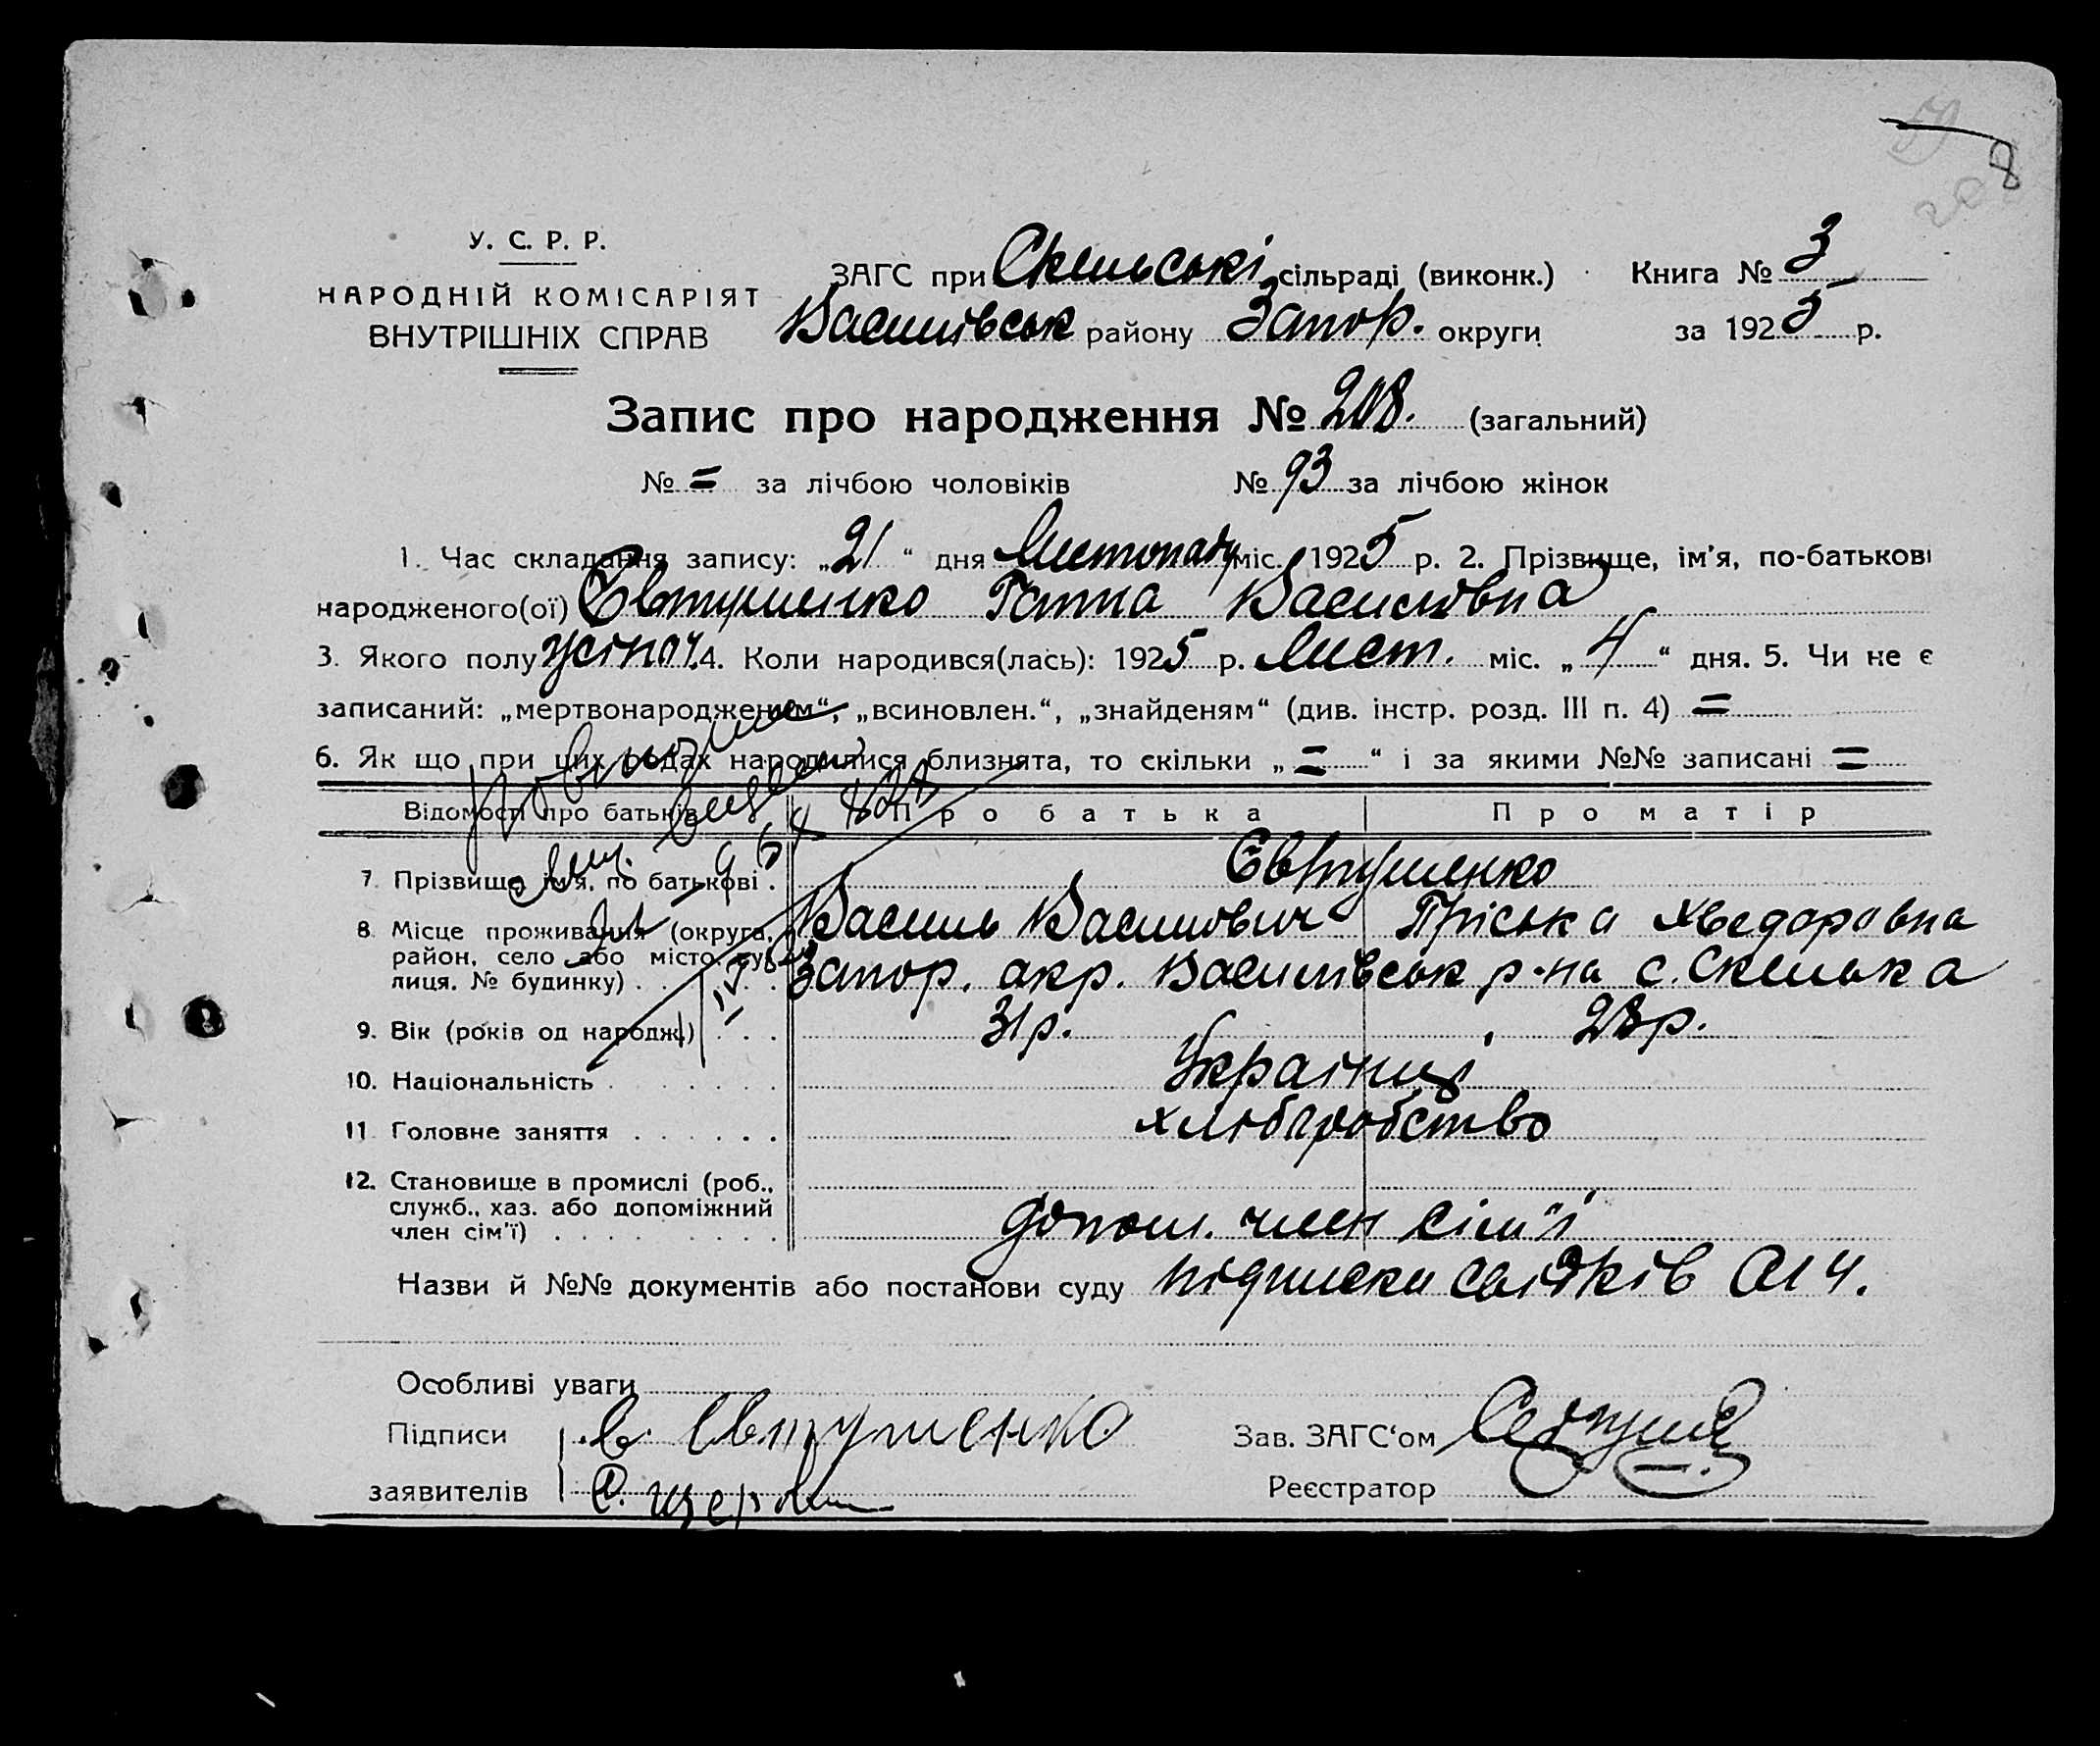 8
У. С. Р. Р.
НАРОДНІЙ КОМІСАРІЯТ
ВНУТРІШНІХ СПРАВ
ЗАГС при Скельські сільраді (виконк.) Книга № 3
Василівськ району Запор. округи за 1925 р.
Запис про народження № 208. (загальний)
№ = за лічбою чоловіків № 93 за лічбою жінок
1. Час складання запису: „21“ дня Листопаду міс. 1925 р. 2. Прізвище, ім’я, по-батькові
народженого(ої) Євтушенко Ганна Василівна
3. Якого полу жіноч. 4. Коли народився(лась): 1925 р. Лист. міс. „4“ дня. 5. Чи не є
записаний: „мертвонародженим“, „всиновлен.“, „знайденям“ (див. інстр. розд. III п. 4) =
6. Як що при цих родах народилися близнята, то скільки „=“ і за якими №№ записані =
Відомості про батьків Про батька Про матір
7. Прізвище, ім’я, по батькові . Євтушенко
Василь Васильович Пріська Хведоровна
8. Місце проживання (округа,
район, село або місто, ву-
лиця, № будинку) . . . . Запор. окр. Василівськ р-на с. Скелька
9. Вік (років од народж.) . . . 31 р. 28 р.
10. Національність . . . . . . . Українці
11. Головне заняття . . . . . . хліборобство
12. Становище в промислі (роб.,
служб., хаз. або допоміжний
член сім’ї) . . . . . . . . . допом. член сім"ї
Назви й №№ документів або постанови суду підписки свідків
Особливі уваги
Підписи В. Євтушенко Зав. ЗАГС‘ом
заявителів Реєстратор